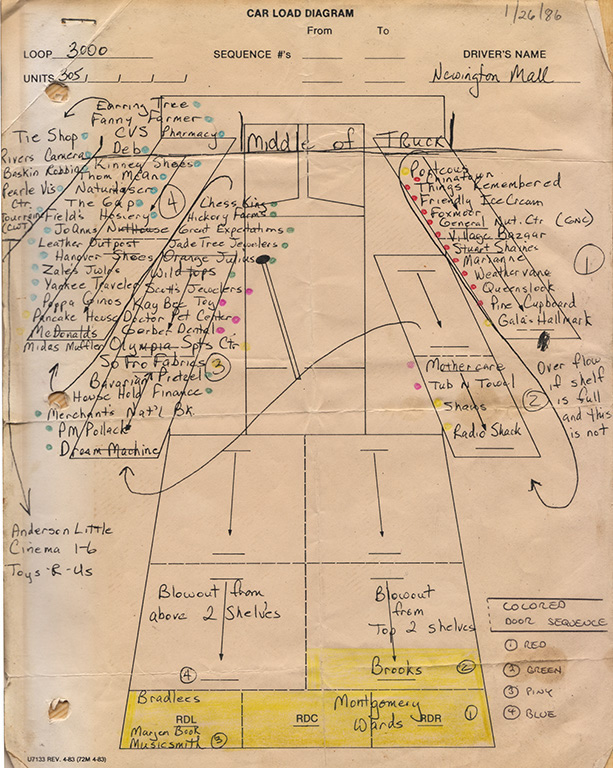 CAR LOAD DIAGRAM
1/26/86
From To
LOOP 3000
SEQUENCE #'s
DRIVER'S NAME
UNITS 305
Newington Mall
Middle of Truck
Earring Tree
Fanny Farmer
CVS Pharmacy
Tie Shop
Deb
Rivers Camera
Kinney Shoes
Baskin Robbins
Thom McAn
Pearle Vis
Ctr.
Naturalizer
The Gap
Field's Hosiery
JoAnns
NutHouse
Leather Outpost
Hanover Shoes
Zale's Jwlrs
Yankee Traveler
Poppa Ginos
Pancake House
McDonalds
Midas Muffler
④
Chess King
Hickory Farms
Great Expectations
Jade Tree Jewelers
Orange Julius
Wild Tops
Scott's Jewelers
Kay Bee Toy
Doctor Pet Center
Gerber Dental
Olympia Spts Ctr
So Fro Fabrics
③
Bavarian Pretzel
House Hold Finance
Merchants Nat'l Bk.
PM Pollack
Dream Machine
Anderson Little
Cinema 1-6
Toys-R-Us
Porteous
Chinatown
Things Remembered
Friendly Ice Cream
Foxmoor
General Nut. Ctr (GNC)
Village Bazaar
Stuart Shaines
Marianne
Weathervane
Queenslook
Pine Cupboard
Gala's Hallmark
①
Mothercare
Tub N Towel
Shaws
Radio Shack
②
Over flow
if shelf
is full
and this
is not
Blowout from
above 2 Shelves
④
Blowout
from
Top 2 shelves
Brooks ②
Bradlees
RDL
Marjen Book
Musicsmith ③
RDC
Montgomery
Wards
RDR
①
COLORED
DOOR SEQUENCE
① RED
② GREEN
③ PINK
④ BLUE
U7133 REV. 4-83 (72M 4-83)